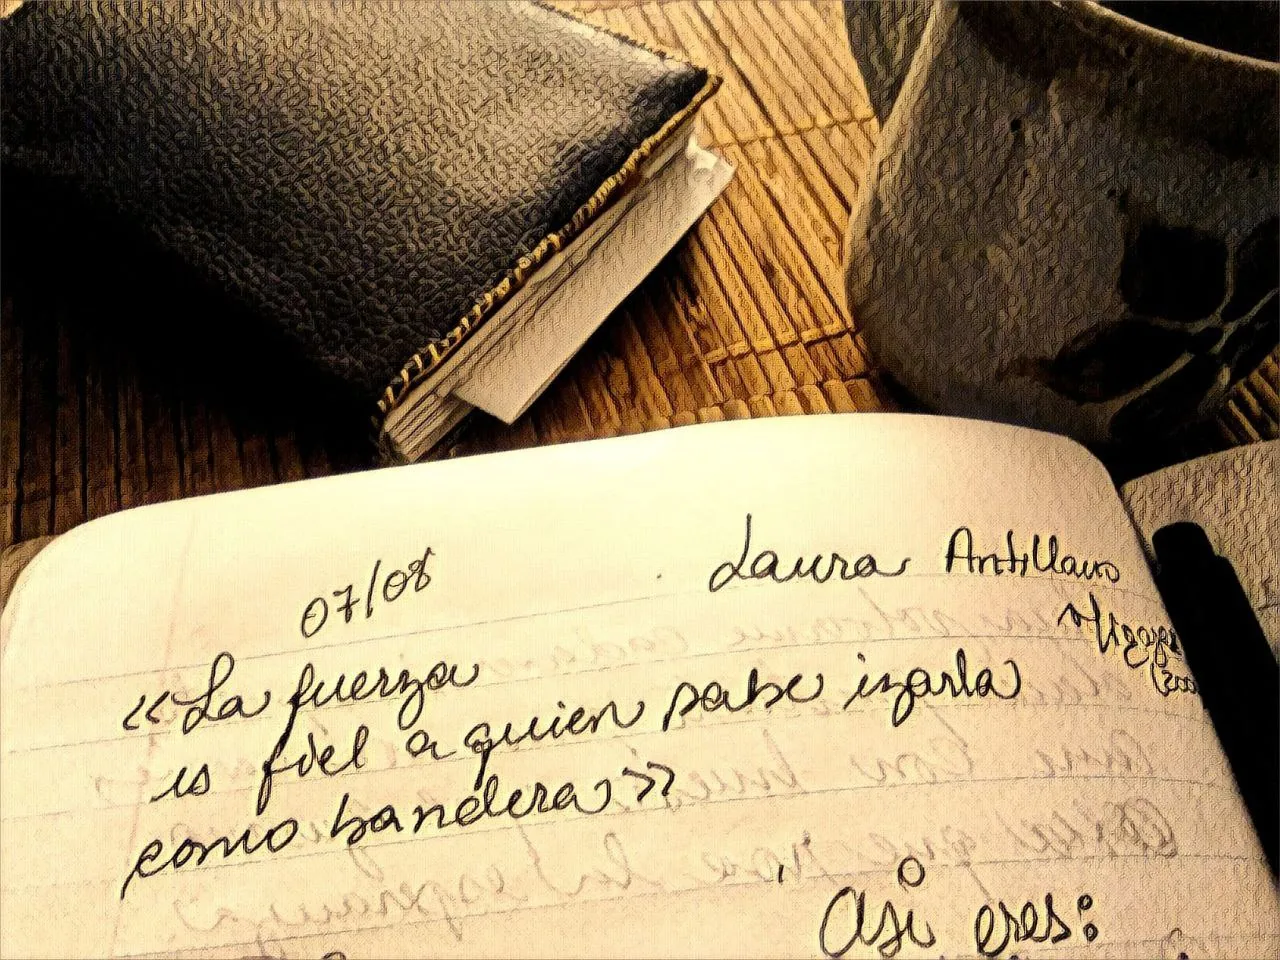 07/08
Laura Antillano
«La fuerza
es fiel a quien sabe izarla
como bandera»
Así eres: